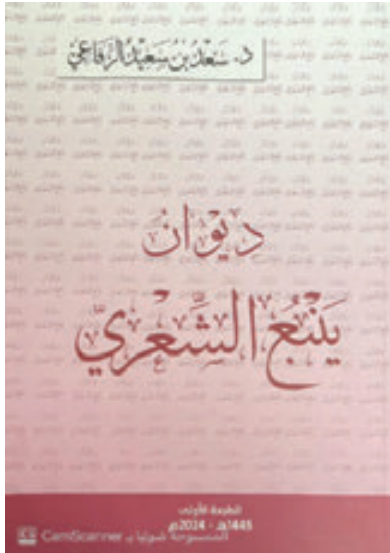 د. سَعْدُ بْنُ سَعِيْدٍ الرِّفَاعِيّ
دِيْوَانُ
يَنْبُعَ الشِّعْرِيّ
الطبعة الأولى
1445هـ - 2024م
الممسوحة ضوئيا بـ CamScanner